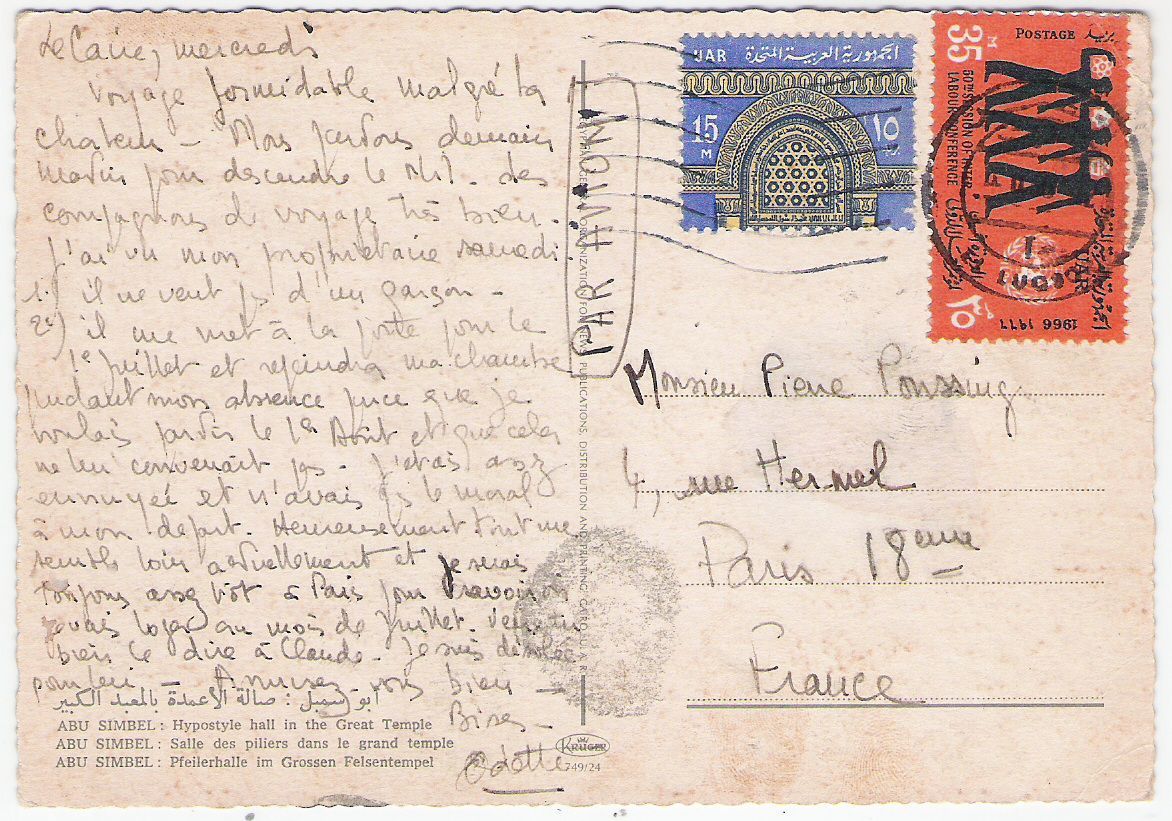 Le Caire, mercredi
Voyage formidable malgré la
chaleur - Nous partons demain
matin pour descendre le Nil. des
compagnons de voyage très bien -
J'ai vu mon propriétaire samedi
1°) il ne veut pas d'un garçon -
2°) il me met à la porte pour le
1er Juillet et ma chambre
pendant mon absence parce que je
voulais partir le 1er Août et que cela
ne lui convenait pas - J'étais assez
ennuyée et n'avais pas le moral
à mon départ. Heureusement tout me
semble loin actuellement et je serai
toujours assez tôt à Paris pour savoir où
je vais loger au mois de Juillet. Veux-tu
bien le dire à Claude - Je suis désolée
pour lui - Amusez vous bien -
Bises -
Odette
أبو سمبل : صالة الأعمدة بالمعبد الكبير
ABU SIMBEL : Hypostyle hall in the Great Temple
ABU SIMBEL : Salle des piliers dans le grand temple
ABU SIMBEL : Pfeilerhalle im Grossen Felsentempel
KRÜGER
749/24
PUBLICATIONS, DISTRIBUTION AND PRINTING
PAR AVION
UAR الجمهورية العربية المتحدة
15 M ١٥
POSTAGE بريد
35 M
50TH SESSION OF INTER.
LABOUR CONFERENCE
UAR
1966 ١٩٦٦
٣٥
Monsieur Pierre Poussing
4, rue Hermel
Paris 18eme
France